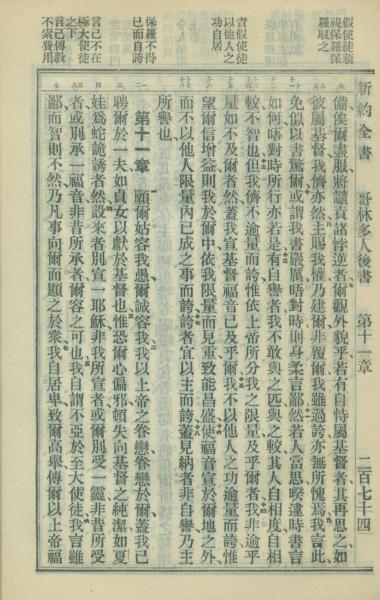 假使徒藐
視保羅保
羅駁之
責假使徒
以他人之
功自居
保羅不得
已而自誇
言己不在
極大使徒
之下
言己傳教
不索費用
新約全書 哥林多人後書 第十一章 二百七十四
備俟爾盡服將譴責諸悖逆者爾觀外貌乎若有自恃屬基督者其再思之如
彼屬基督我儕亦然主賜我權乃建爾非覆爾我雖過誇亦無所愧焉我言此
免似以書驚爾或謂我書嚴厲晤對時則身柔言鄙然若人當思暌違時書言
如何晤對時所行亦若是有自譽者我不敢與之匹與之較其人自相度自相
較不智也但我儕不逾量而誇惟依上帝所分我之限量及乎爾者我非逾乎
量如不及爾者然蓋我宣基督福音已及乎爾我不以他人之功逾量而誇惟
望爾信增益則我於爾中依我限量而見重致能昌盛使福音宣於爾地之外
而不以他人限量內已成之事而誇誇者宜以主而誇蓋見納者非自譽乃主
所譽也
第十一章 願爾姑容我愚爾誠容我我以上帝之眷戀眷戀於爾蓋我已
聘爾於一夫如貞女以獻於基督也惟恐爾心偏邪頓失向基督之純潔如夏
娃爲蛇詭誘者然設來者別宣一耶穌非我所宣者或爾別受一靈非昔所受
者或別承一福音非昔所承者爾容之可也我自謂不亞於至大使徒我言雖
鄙而智則不然乃凡事向爾而顯之於衆我自居卑致爾高舉傳爾以上帝福